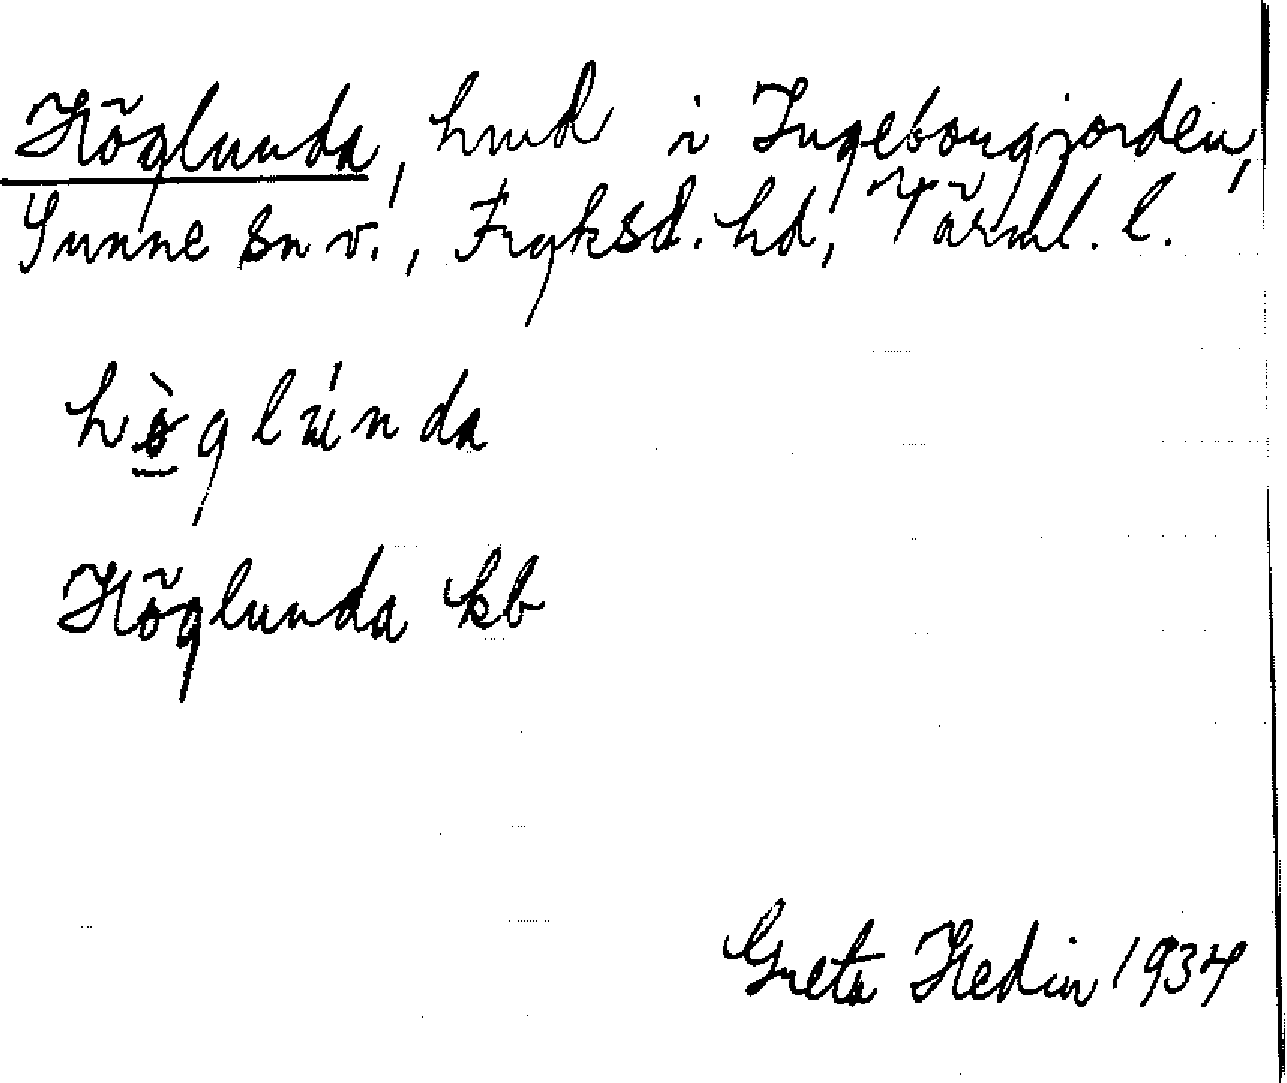 Höglunda, hmd i Ingeborgjorden,
Sunne sn v., Fryksd. hd, Värml. l.
hø̀glúnda
Höglunda kb
Greta Hedin 1934